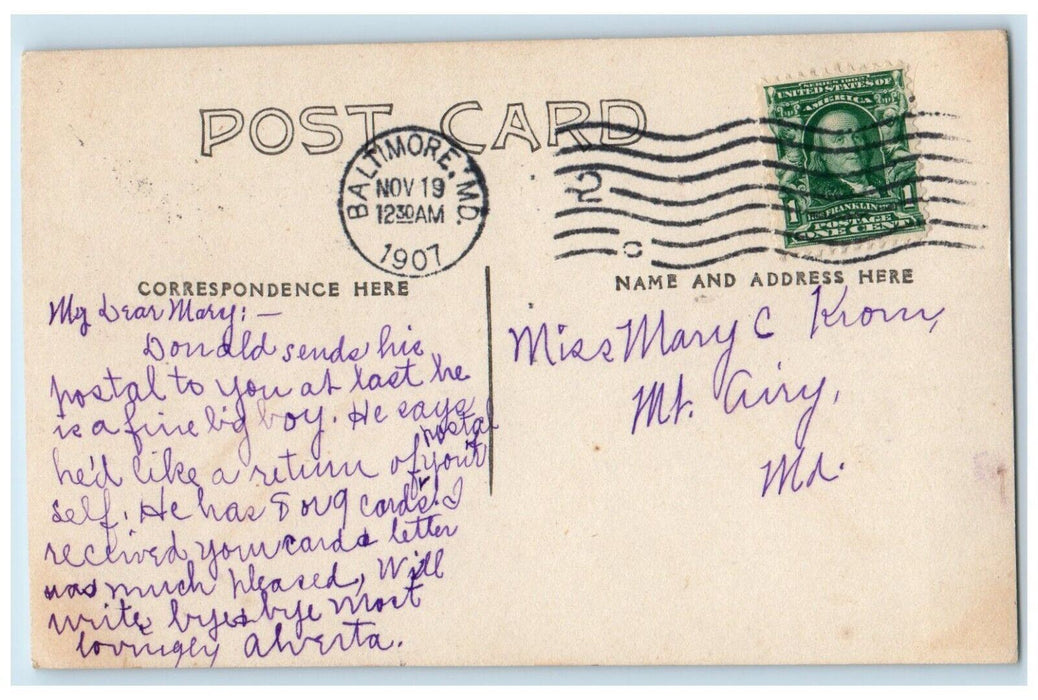 POST CARD
BALTIMORE, MD.
NOV 19
12 30 AM
1907
2
C
SERIES 1902
UNITED STATES OF
AMERICA
1 FRANKLIN 1
POSTAGE
ONE CENT
CORRESPONDENCE HERE
My Dear Mary:—
Donald sends his
postal to you at last he
is a fine big boy. He says
he'd like a return postal of your
self. He has 8 or 9 cards. I
received your card & letter
was much pleased, Will
write, bye bye Most
lovingly Alverta.
NAME AND ADDRESS HERE
Miss Mary C Krom,
Mt. Airy,
Md.